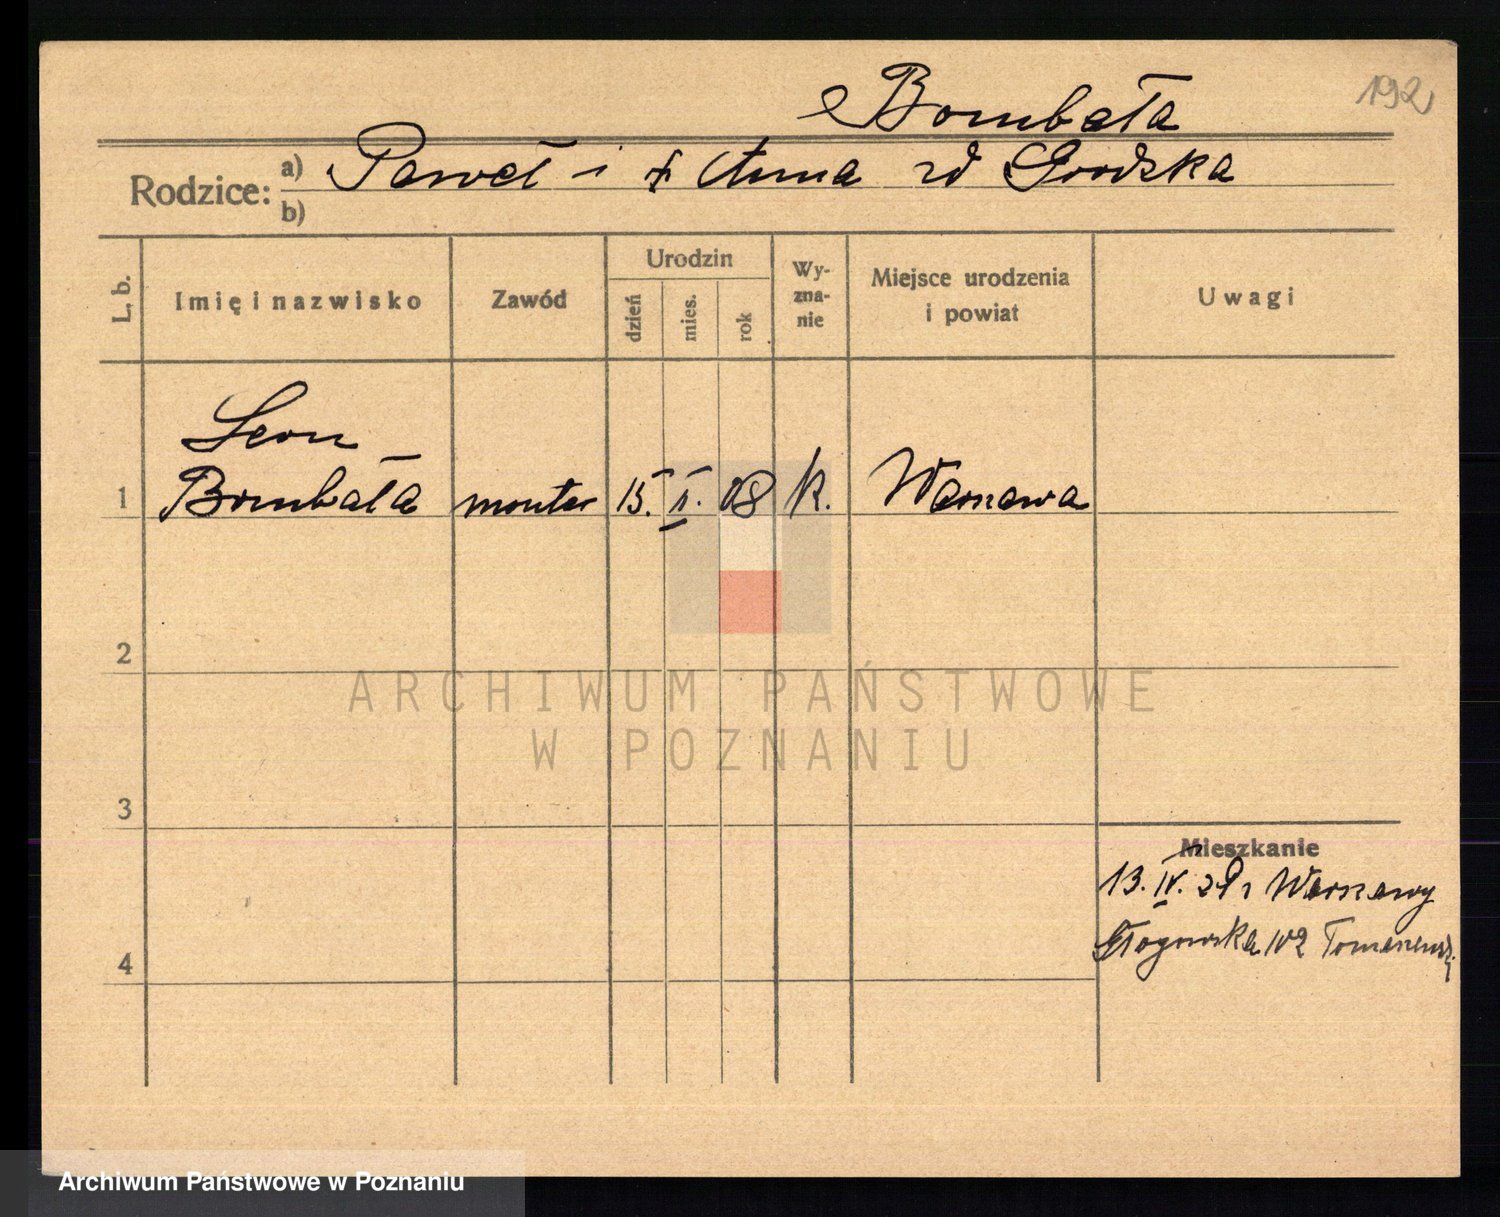 192
Bombała
Rodzice: a) Paweł i † Anna zd Grodzka
b)
L. b. Imię i nazwisko Zawód Urodzin dzień mies. rok Wy-zna-nie Miejsce urodzenia i powiat Uwagi
Leon
1 Bombała monter 15. II. 08 k. Warszawa
2
ARCHIWUM PAŃSTWOWE
W POZNANIU
3
Mieszkanie
13. IV. 29 z Warszawy
4 Głogowska 102
Archiwum Państwowe w Poznaniu